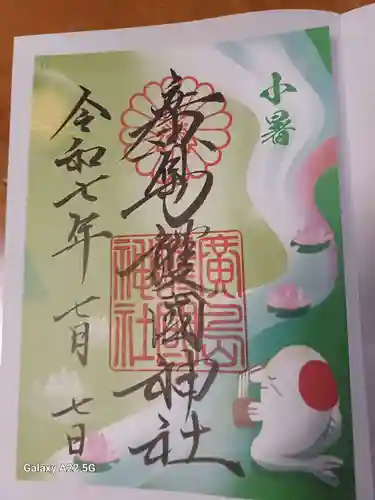 小暑
廣島護國神社
廣島
護國
神社
令和七年 七月 七日
Galaxy A22 5G